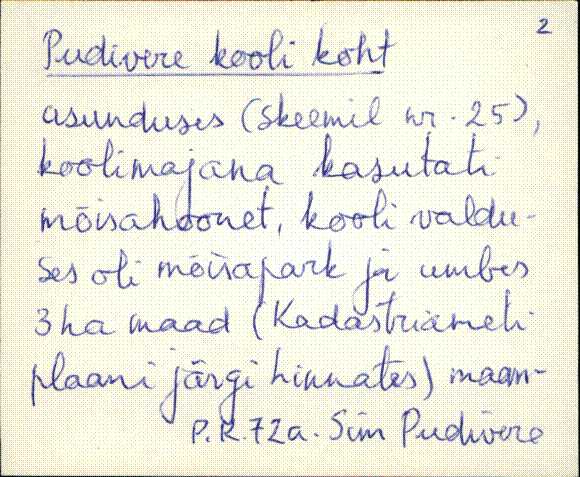 2
Pudivere kooli koht
asunduses (skeemil nr. 25),
koolimajana kasutati
mõisahoonet, kooli valdu-
ses oli mõisapark ja umbes
3 ha maad (Kadastriameti
plaani järgi hinnates) maan-
P.R. 72a. Sim Pudivere